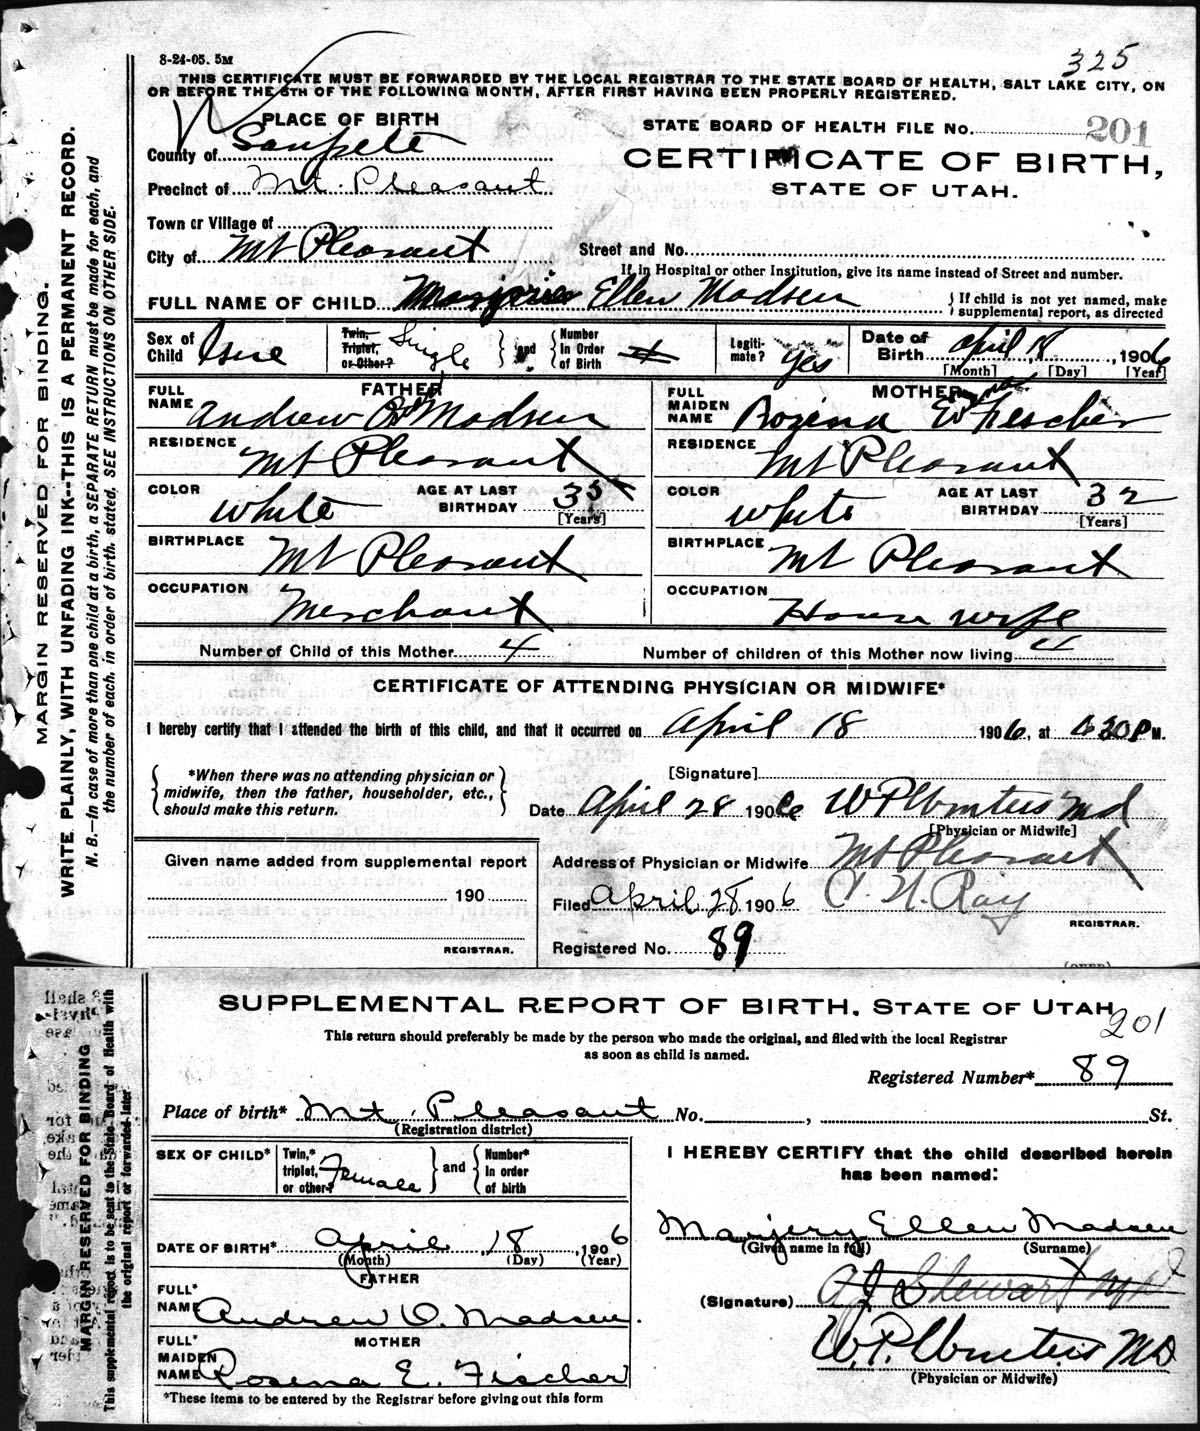 325
8-24-05. 5M
THIS CERTIFICATE MUST BE FORWARDED BY THE LOCAL REGISTRAR TO THE STATE BOARD OF HEALTH, SALT LAKE CITY, ON
OR BEFORE THE 5TH OF THE FOLLOWING MONTH, AFTER FIRST HAVING BEEN PROPERLY REGISTERED.
PLACE OF BIRTH
STATE BOARD OF HEALTH FILE No. 201
County of Sanpete
CERTIFICATE OF BIRTH,
Precinct of Mt. Pleasant
STATE OF UTAH.
Town or Village of
City of Mt Pleasant Street and No.
If in Hospital or other Institution, give its name instead of Street and number.
FULL NAME OF CHILD Marjorie Ellen Madsen } If child is not yet named, make supplemental report, as directed
Sex of Child Twin, Triplet, or Other? Single } and { Number In Order of Birth Legiti-mate? Yes Date of Birth April 18, 1906
[Month] [Day] [Year]
FATHER MOTHER
FULL NAME Andrew Madsen FULL MAIDEN NAME Rozena E Fischer
RESIDENCE Mt Pleasant RESIDENCE Mt Pleasant
COLOR White AGE AT LAST BIRTHDAY 35 [Years] COLOR White AGE AT LAST BIRTHDAY 32 [Years]
BIRTHPLACE Mt Pleasant BIRTHPLACE Mt Pleasant
OCCUPATION Merchant OCCUPATION House wife
Number of Child of this Mother 4 Number of children of this Mother now living 4
CERTIFICATE OF ATTENDING PHYSICIAN OR MIDWIFE*
I hereby certify that I attended the birth of this child, and that it occurred on April 18 1906, at 6 30 P M.
*When there was no attending physician or midwife, then the father, householder, etc., should make this return.
[Signature]
Date April 28 1906 W P Winters Md
[Physician or Midwife]
Given name added from supplemental report
190
REGISTRAR.
Address of Physician or Midwife Mt Pleasant
Filed April 28 1906 N. Ray
REGISTRAR.
Registered No. 89
(OVER)
MARGIN RESERVED FOR BINDING.
WRITE PLAINLY, WITH UNFADING INK--THIS IS A PERMANENT RECORD.
N. B.—In case of more than one child at a birth, a SEPARATE RETURN must be made for each, and
the number of each, in order of birth, stated, SEE INSTRUCTIONS ON OTHER SIDE.
SUPPLEMENTAL REPORT OF BIRTH, STATE OF UTAH
201
This return should preferably be made by the person who made the original, and filed with the local Registrar
as soon as child is named.
Registered Number* 89
Place of birth* Mt. Pleasant No. , St.
(Registration district)
SEX OF CHILD* Twin,* triplet, or other? Female } and { Number* in order of birth
I HEREBY CERTIFY that the child described herein
has been named:
Marjery Ellen Madsen
(Given name in full) (Surname)
DATE OF BIRTH* April, 18, 1906
(Month) (Day) (Year)
FATHER
FULL* NAME Andrew O. Madsen.
(Signature) A J Stewart M D
MOTHER
FULL* MAIDEN NAME Rosena E. Fischer
W. P. Winters MD
(Physician or Midwife)
*These items to be entered by the Registrar before giving out this form
MARGIN RESERVED FOR BINDING
This supplemental report is to be sent to the State Board of Health with
the original report or forwarded later.